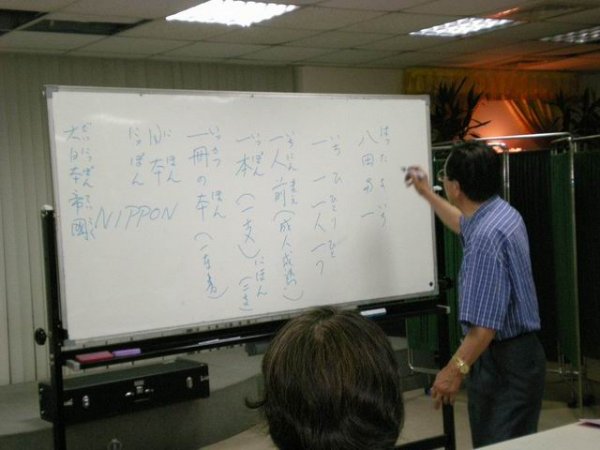 はったよいち
八田與一
いち ひ ひとり ひと
一 一 一人 一つ
いちにんまえ
一人前(成人成熟)
いっぽん にほん
一本(一支)(二支)
いっさつ ほん
一冊の本(一本書)
にほん
日本
にっぽん
NIPPON
だいにっぽんていこく
大日本帝國